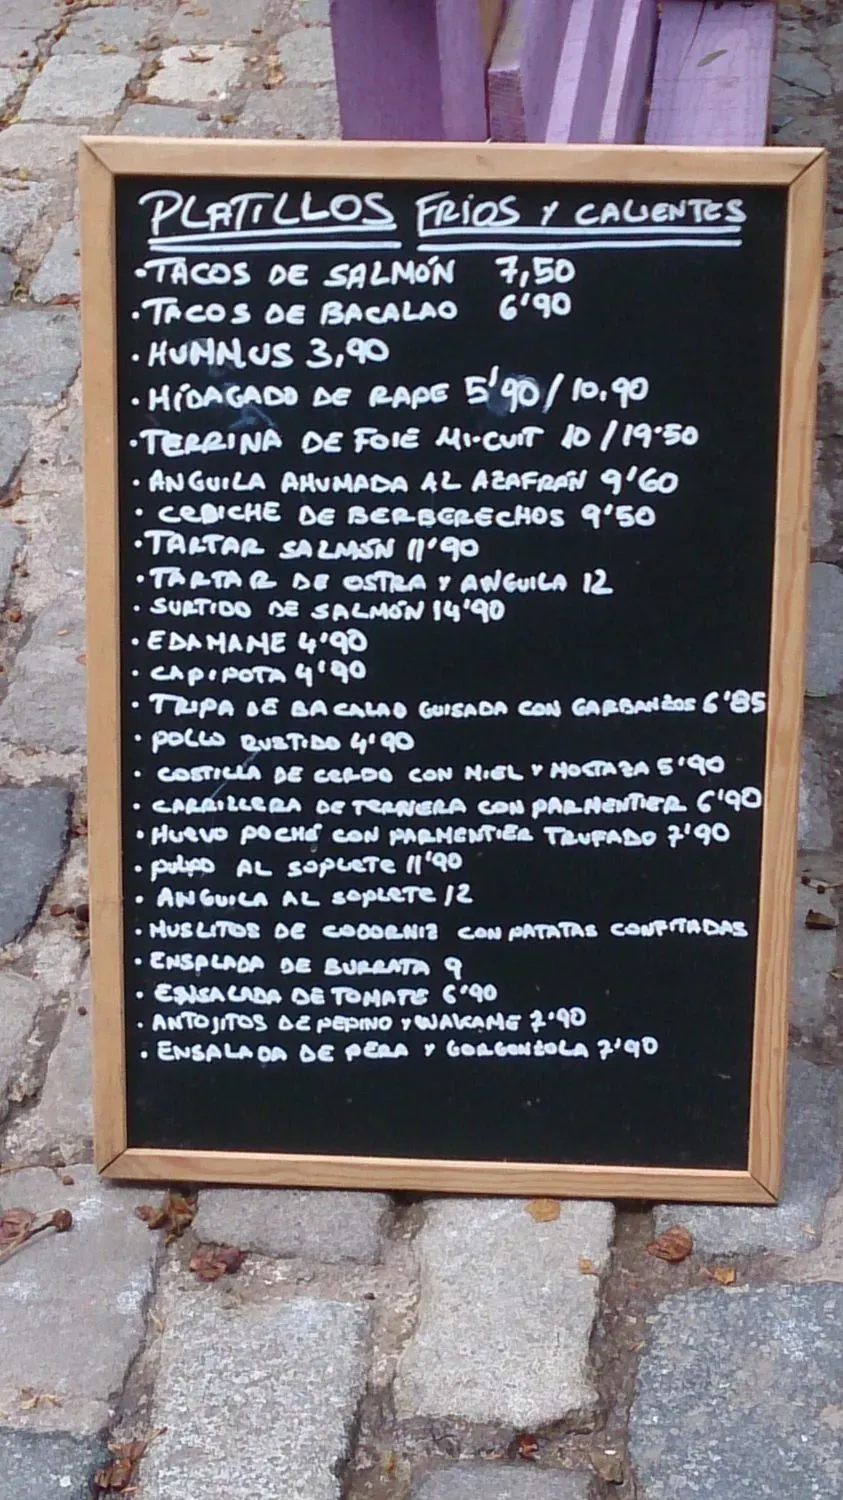 PLATILLOS FRÍOS Y CALIENTES
• TACOS DE SALMÓN 7,50
• TACOS DE BACALAO 6'90
• HUMMUS 3,90
• HÍDAGADO DE RAPE 5'90/10,90
• TERRINA DE FOIE MI-CUIT 10/19'50
• ANGUILA AHUMADA AL AZAFRÁN 9'60
• CEBICHE DE BERBERECHOS 9'50
• TARTAR SALMÓN 11'90
• TARTAR DE OSTRA Y ANGUILA 12
• SURTIDO DE SALMÓN 14'90
• EDAMAME 4'90
• CAPIPOTA 4'90
• TRIPA DE BACALAO GUISADA CON GARBANZOS 6'85
• POLLO RUSTIDO 4'90
• COSTILLA DE CERDO CON MIEL Y MOSTAZA 5'90
• CARRILLERA DE TERNERA CON PARMENTIER 6'90
• HUEVO POCHÉ CON PARMENTIER TRUFADO 7'90
• PULPO AL SOPLETE 11'90
• ANGUILA AL SOPLETE 12
• MUSLITOS DE CODORNIZ CON PATATAS CONFITADAS
• ENSALADA DE BURRATA 9
• ENSALADA DE TOMATE 6'90
• ANTOJITOS DE PEPINO Y WAKAME 7'90
• ENSALADA DE PERA Y GORGONZOLA 7'90